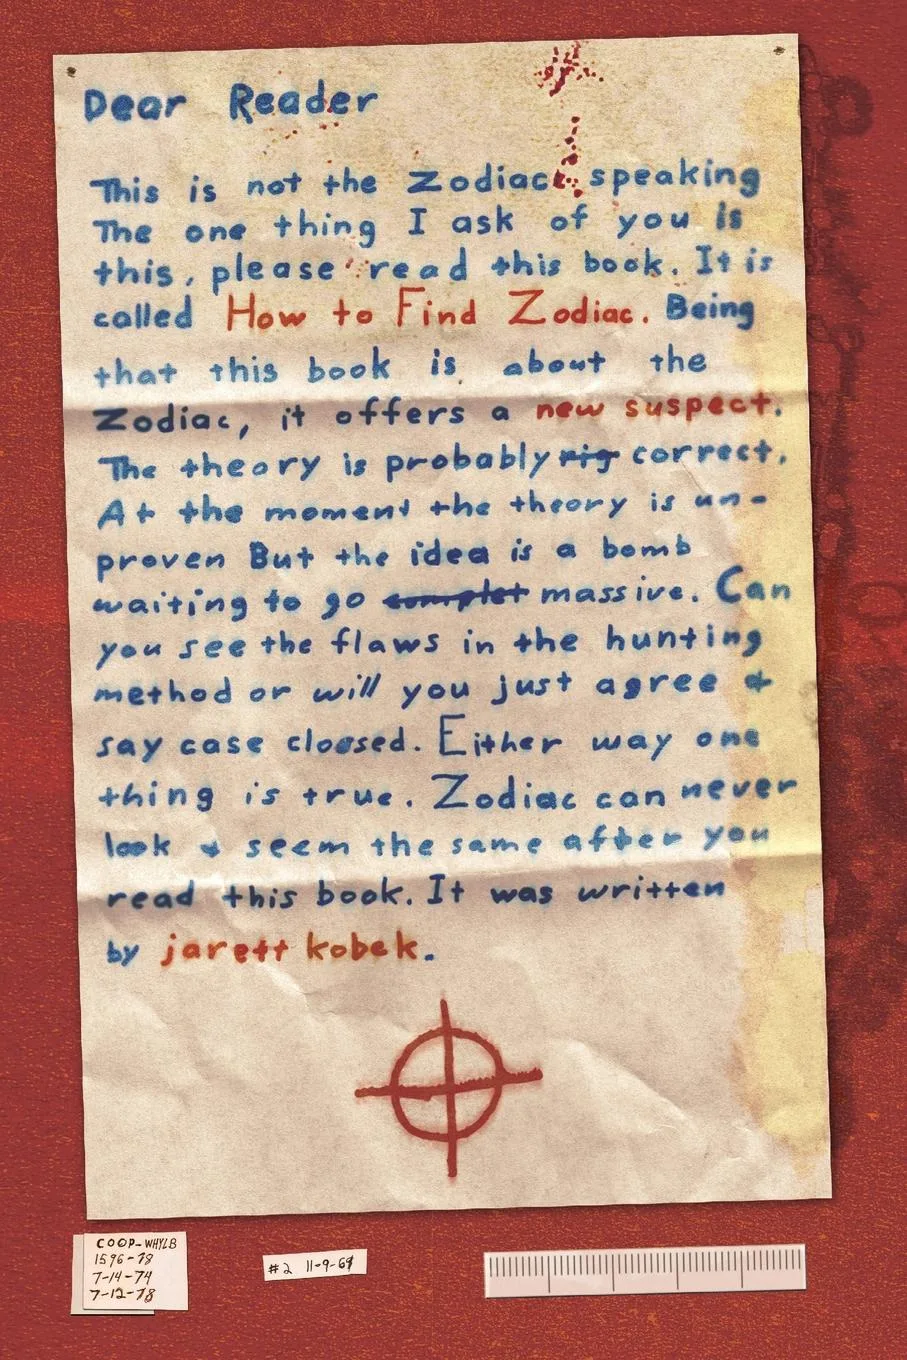 Dear Reader
This is not the Zodiac speaking
The one thing I ask of you is
this, please read this book. It is
called How to Find Zodiac. Being
that this book is about the
Zodiac, it offers a new suspect.
The theory is probably rig correct.
At the moment the theory is un-
proven But the idea is a bomb
waiting to go complet massive. Can
you see the flaws in the hunting
method or will you just agree &
say case cloesed. Either way one
thing is true. Zodiac can never
look & seem the same after you
read this book. It was written
by jarett kobek.
COOP-WHYLB
1596-78
7-14-74
7-12-78
#2 11-9-69